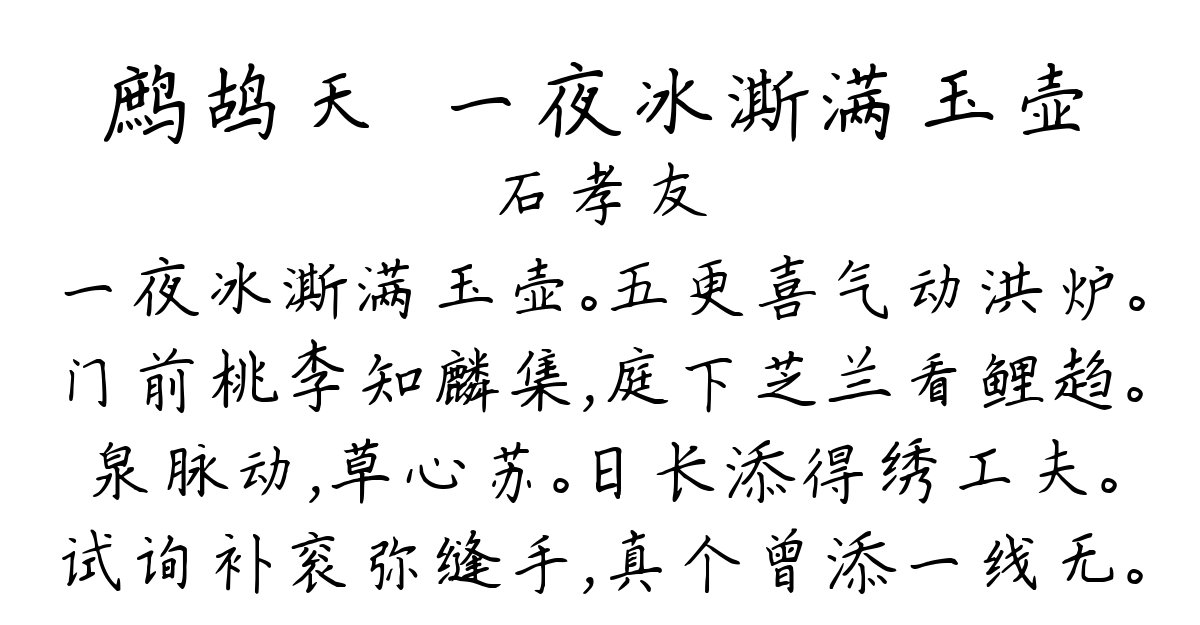 鹧鸪天 一夜冰澌满玉壶
石孝友
一夜冰澌满玉壶。五更喜气动洪炉。
门前桃李知麟集,庭下芝兰看鲤趋。
泉脉动,草心苏。日长添得绣工夫。
试询补衮弥缝手,真个曾添一线无。